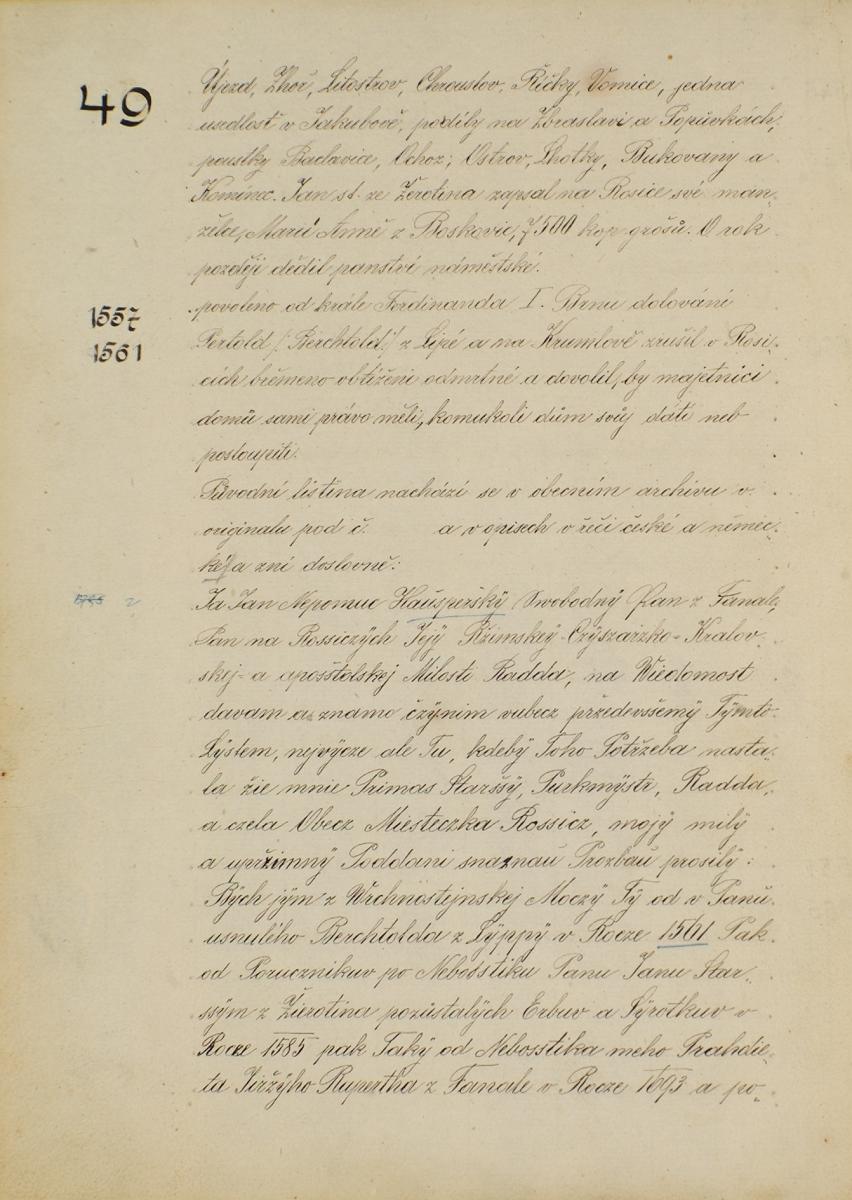 49
Újezd, Zhoř, Litostrov, Chroustov, Říčky, Vomice, jedna
usedlosť v Jakubově, podíly na Zbraslavi a Popůvkách,
poustky Baclavice, Ochoz, Ostrov, Lhotky, Bukovany a
Komínec. Jan st. ze Žerotína zapsal na Rosice své man„
želce, Marii Anně z Boskovic, 7500 kop grošů. O rok
později dědil panství náměstské.
1557 povoleno od krále Ferdinanda I. Brnu dolování
1561 Pertold /: Berchtold :/ z Lipé a na Krumlově zrušil v Rosi„
cích břemeno obtížení odmrtné a dovolil, by majetníci
domů sami právo měli, komukoli dům svůj dáti neb
postoupiti.
Původní listina nachází se v obecním archivu v
originalu pod č. a v opisech v řeči české a němec„
ké/a zní doslovně:
Ja Jan Nepomuc Hausperský Swobodný Pan z Fanale,
Pan na Rossiczých Jejý Ržimskeý-Czýszařzko-Kralov„
skej- a apoštolskej Milosti Radda, na Wiedomost
davam a známo čzýnim vubecz przedevssemý Týmto
Lýstem, nejvýcze ale Tu, kdebý Toho Potřzeba nasta„
la žie mnie Primas Starššý, Purkmýstr, Radda,
a czela Obecz Miesteczka Rossicz, mojý milý
a upržimný Poddani snaznau Prozbau prosilý:
Bých jým z Wrchnostejnskej Moczý Tý od v Panu
usnulého Berchtolda z Lýppý v Rocze 1561 Pak
od Porucznikuv po Nebosstiku Panu Janu Star„
ssým z Žierotina pozůstalých Erbuv a Sýrotkuv v
Rocze 1585 pak Taký od Nebosstika meho Prahdie„
ta Jiržýho Rupertha z Fanale v Rocze 1693 a po„